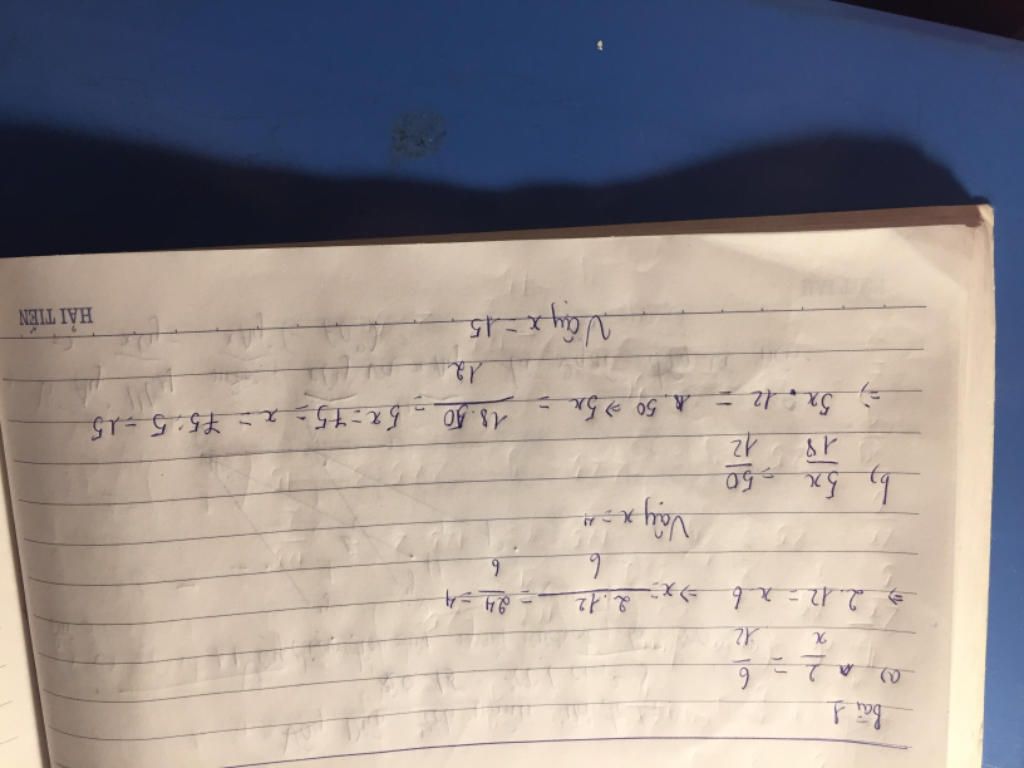 Bài 1
a) 2/x = 6/12
=> 2.12 = x.6 => x = 2.12/6 = 24/6 = 4
Vậy x = 4
b) 5x/18 = 50/12
=> 5x.12 = 18.50 => 5x = 18.50/12 = 5x = 75 = x = 75:5 = 15
Vậy x = 15
HẢI TIẾN